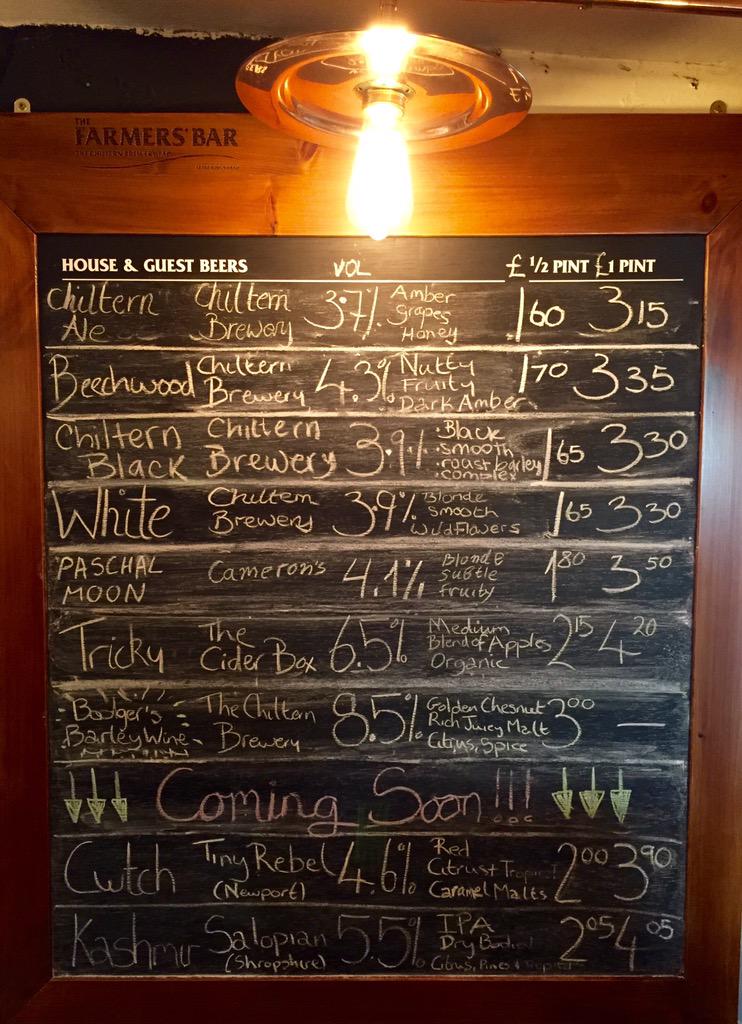 THE
FARMERS' BAR
THE CHILTERN BREWERY TAP
HOUSE & GUEST BEERS VOL £ 1/2 PINT £1 PINT
Chiltern Ale Chiltern Brewery 3.7% Amber Grapes Honey 1 60 3 15
Beechwood Chiltern Brewery 4.3% Nutty Fruity Dark Amber 1 70 3 35
Chiltern Black Chiltern Brewery 3.9% • Black • smooth • roast barley • complex 1 65 3 30
White Chiltern Brewery 3.9% Blonde smooth wildflowers 1 65 3 30
PASCHAL MOON Cameron's 4.1% Blonde subtle fruity 1 80 3 50
Tricky The Cider Box 6.5% Medium Blend of Apples Organic 2 15 4 20
Bodger's Barley Wine The Chiltern Brewery 8.5% Golden Chesnut Rich Juicy Malt Citrus, Spice 3 00 —
Coming Soon!!!
Cwtch Tiny Rebel (Newport) 4.6% Red Citrus + Tropical Caramel Malts 2 00 3 90
Kashmir Salopian (Shropshire) 5.5% IPA Dry Bodied Citrus, Pines + Tropical 2 05 4 05